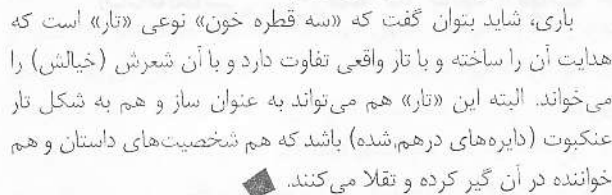 باری، شاید بتوان گفت که «سه قطره خون» نوعی «تار» است که
هدایت آن را ساخته و با تار واقعی تفاوت دارد و با آن شعرش (خیالش) را
می‌خواند. البته این «تار» هم می‌تواند به عنوان ساز و هم به شکل تار
عنکبوت (دایره‌های درهم‌شده) باشد که هم شخصیت‌های داستان و هم
خواننده در آن گیر کرده و تقلا می‌کنند.